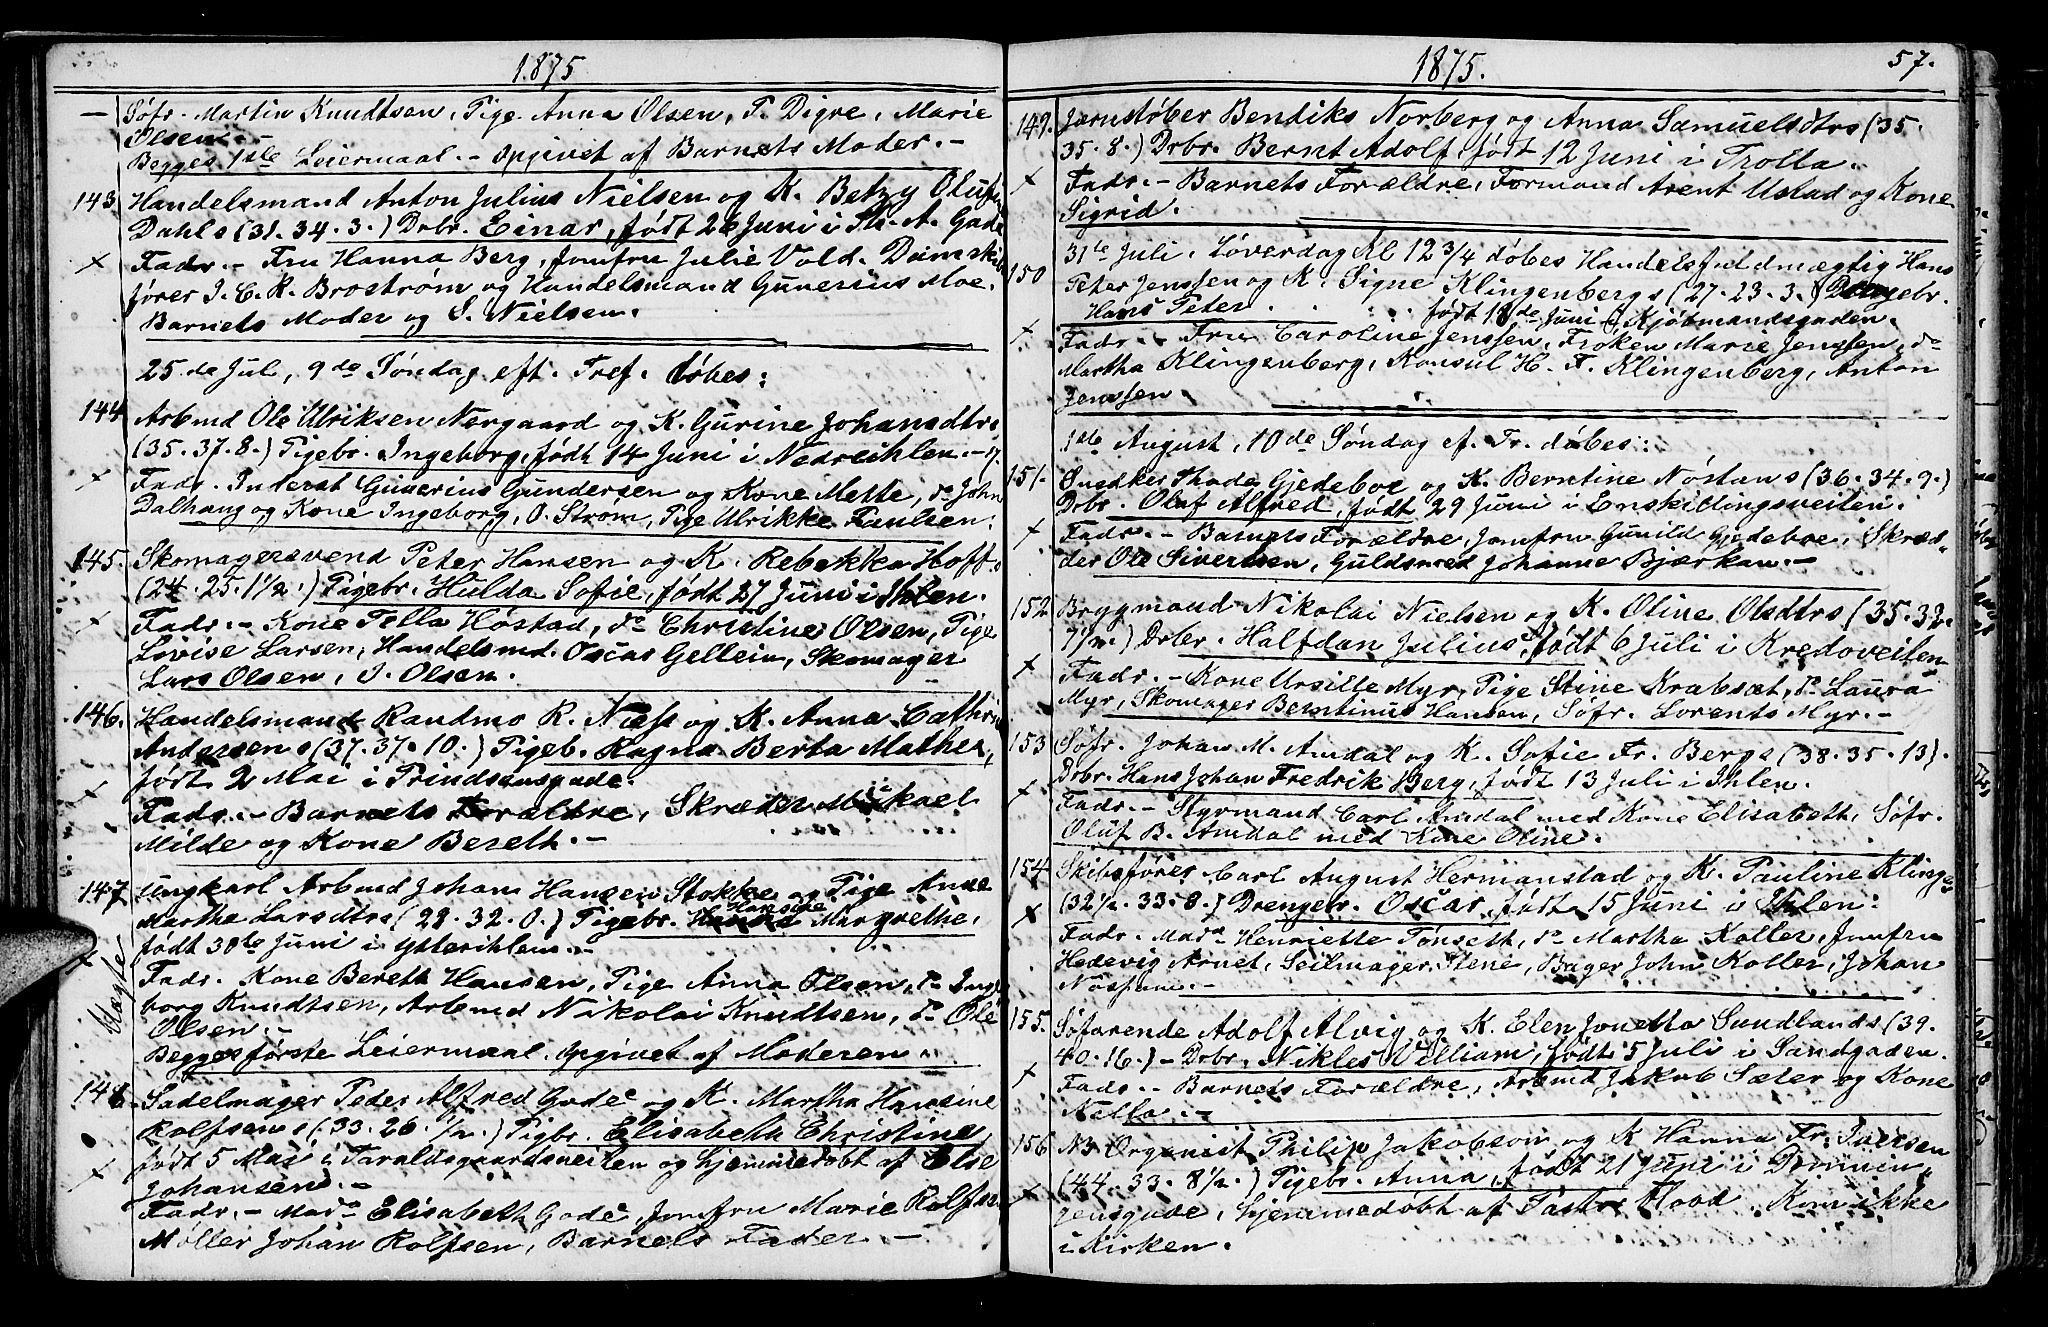 1875
— Söfr. Martin Knudtsen, Pige Anna Olsen, P. Digre, Marie
Olsen. —
Begges 1ste Leiermaal. — Opgivet af Barnets Moder. —
143. Handelsmand Anton Julius Nielsen og K. Betzy Oluf
Dahls (31. 34. 3.) Drbr. Einar, født 26 Juni i St. A. Gade
× Fadr. — Fru Hanna Berg, Jomfru Julie Vold. Damskib
fører I. C. R. Broström og Handelsmand Gunerius Moe.
Barnets Moder og S. Nielsen.
25de Jul, 9de Søndag eft. Tref. døbes:
144 Arbmd Ole Ulriksen Nergaard og K. Gurine Johansdtrs
(35. 37. 8.) Pigebr. Ingeborg, født 14 Juni i Nedreihlen. —
× Fadr. Inderst Gunerius Gundersen og Kone Mette, do John
Dalhaug og Kone Ingeborg, O. Strøm, Pige Ulrikke Paulsen.
145. Skomagersvend Peter Hansen og K. Rebekka Hoff
(24. 25. 1½.) Pigebr. Hulda Sofie, født 27 Juni i Ihlen.
× Fadr. — Kone Pella Høstad, do Christine Olsen, Pige
Lovise Larsen, Handelsmd. Oscar Gellein, Skomager
Lars Olsen, I. Olsen.
146. Handelsmand Randmo R. Næss og K. Anna Cathrin
Andersens (37. 37. 10.) Pigeb. Ragna Berta Mathea,
født 2 Mai i Prindsensgade.
× Fadr. — Barnets Forældre, Skræder Mikael
Milde og Kone Bereth. —
147 Ungkarl Arbmd Johan Hansen Stokke og Pige Ane
Martha Larsdtrs (29. 32. 0.) Pigebr. Hansine Margrethe,
født 30te Juni i Ytterihlen. —
× Fadr. Kone Bereth Hansen, Pige Anna Olsen, do Inge
borg Knudtsen, Arbmd Nikolai Knudtsen, do Ole
Olsen. —
Begges første Leiermaal, opgivet af Moderen.
Uægte
148 Sadelmager Peder Alfred Gade og K. Martha Hansine
Rolfsens (33. 26. ½.) Pigbr. Elisabeth Christine,
født 5 Mai i Taraldsgaardsveiten og hjemmedøbt af Else
× Johansen. —
Fadr. — Mada Elisabeth Gade, Jomfru Marie Rolfsen
Møller Johan Rolfsen, Barnets Fader. —
1875.
57.
149. Jernstøber Bendiks Norberg og Anna Samuelsdtrs (35.
35. 8.) Drbr. Bernt Adolf, født 12 Juni i Trolla.
× Fadr. — Barnets Forældre, Formand Arent Ustad og Kone
Sigrid.
31te Juli, Løverdag Kl 12 3/4 døbes Handelsfuldmægtig Hans
150 Peter Jenssen og K. Signe Klingenbergs (27. 23. 3.) Drengebr.
Hans Peter . . . født 18de Juni i Kjøbmandsgaden.
× Fadr. — Fru Caroline Jenssen, Frøken Marie Jenssen, do
Martha Klingenberg, Konsul H. F. Klingenberg, Anton
Jenssen
1ste August, 10de Søndag ef. Tr. døbes:
151. Snedker Thade Gjedeboe og K. Berntine Nøstans (36. 34. 9.)
Drbr. Oluf Alfred, født 29 Juni i Enskillingsveiten.
× Fadr. — Barnets Forældre, Jomfru Gunild Gjedeboe, Skræd-
der Ole Sivertsen, Guldsmed Johanne Bjærkan. —
152 Brygmand Nikolai Nielsen og K. Oline Olsdtrs (35. 32.
7½.) Drbr. Halfdan Julius, født 6 Juli i Kredoveiten
× Fadr. — Kone Ursille Myr, Pige Stine Krabsæt, do Laura
Myr, Skomager Berntinus Hansen, Söfr. Lorents Myr. —
153 Söfr. Johan M. Amdal og K. Sofie Fr. Bergs (38. 35. 13).
Drbr. Hans Johan Fredrik Berg, født 13 Juli i Ihlen.
× Fadr. — Styrmand Carl Amdal med Kone Elisabeth, Söfr.
Oluf B. Amdal med Kone Oline.
154 Skibsfører Carl August Hermanstad og K. Pauline Klinge
(32½. 33. 8.) Drengebr. Oscar, født 15 Juni i Ihlen.
× Fadr. Mada Henriette Tønseth, do Martha Koller, Jomfru
Hedevig Arnet, Seilmager Stene, Bager John Koller, Johan
155. Søfarende Adolf Alvig og K. Elen Jonetta Sundlands (39.
40. 16.) — Drbr. Niklas Williani, født 5 Juli i Sandgaden.
× Fadr. — Barnets Forældre, Arbmd Jakob Sæter og Kone
Nella. —
156 N3 Organist Philip Jakobson og K Hanna Fr. Iversen
(44. 33. 8½.) Pigebr. Anna, født 21 Juni i Dronnin-
× gensgade, hjemmedøbt af Pastor Hood. Kom ikke
i Kirken.